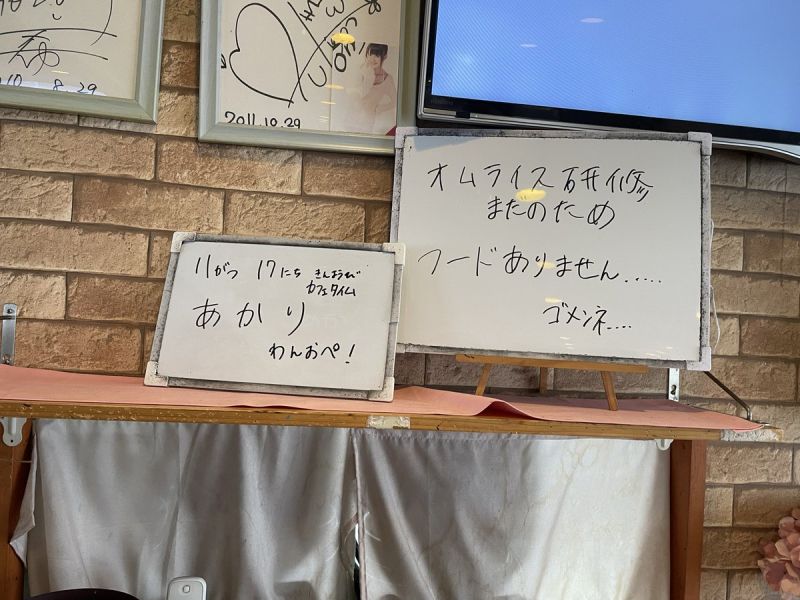 2011.10.29
オムライス研修
まだのため
フードありません.....
ゴメンネ....
11がつ 17にち きんようび
カフェタイム
あかり
わんおぺ!